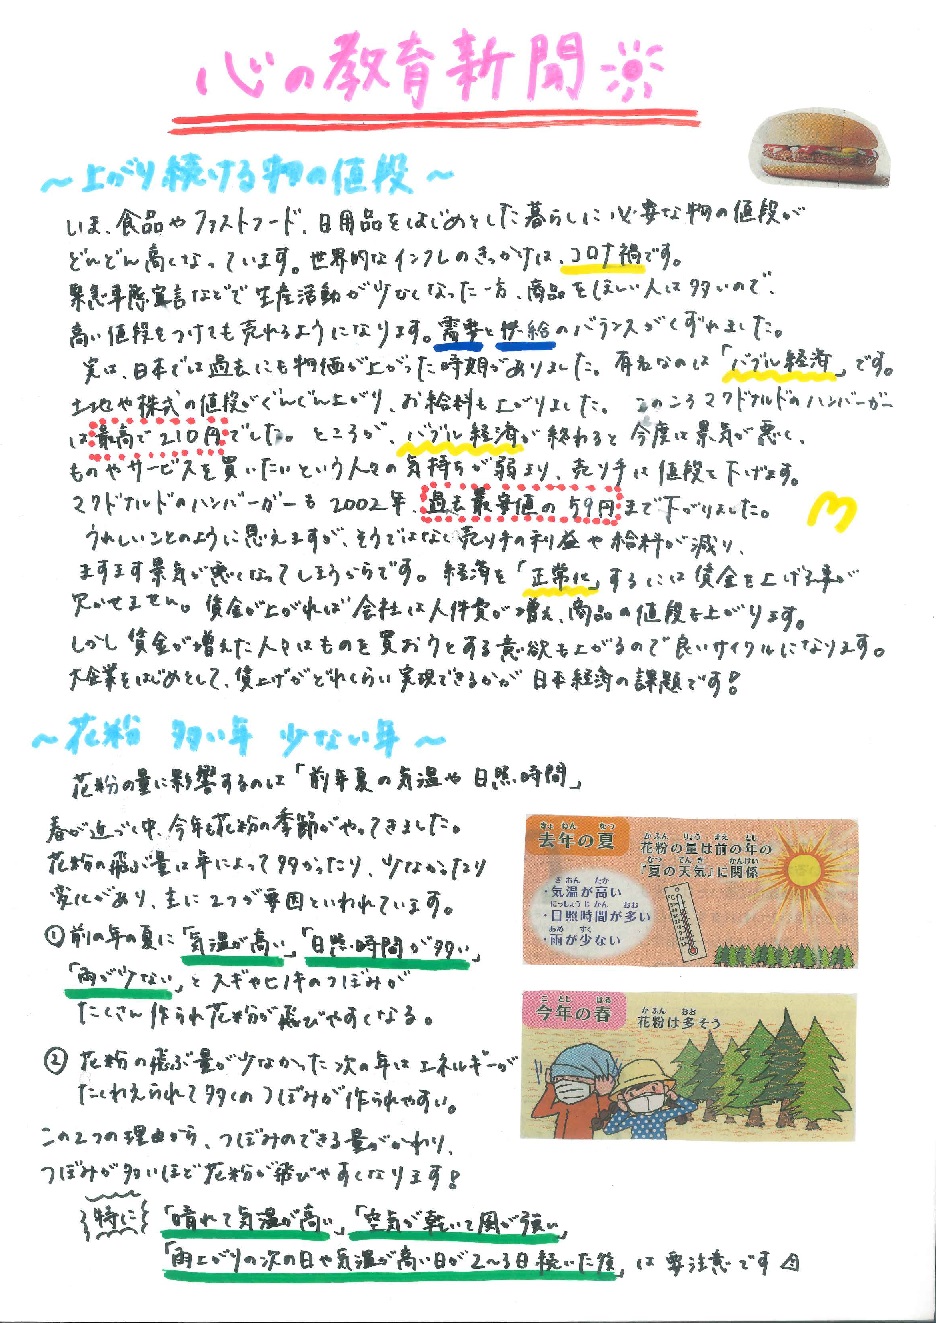 心の教育新聞
～上がり続ける物の値段～
いま、食品やファストフード、日用品をはじめとした暮らしに必要な物の値段が
どんどん高くなっています。世界的なインフレのきっかけは、コロナ禍です。
緊急事態宣言などで生産活動が少なくなった一方、商品をほしい人は多いので、
高い値段をつけても売れるようになります。需要と供給のバランスがくずれました。
実は、日本では過去にも物価が上がった時期がありました。有名なのは「バブル経済」です。
土地や株式の値段がぐんぐん上がり、お給料も上がりました。このころマクドナルドのハンバーガー
は最高で210円でした。ところが、バブル経済が終わると今度は景気が悪く、
ものやサービスを買いたいという人々の気持ちが弱まり、売り手は値段を下げます。
マクドナルドのハンバーガーも2002年、過去最安値の59円まで下がりました。
うれしいことのように思えますが、そうではない売り手の利益や給料が減り、
ますます景気が悪くなってしまうからです。経済を「正常化」するには賃金を上げる事が
欠かせません。賃金が上がれば会社は人件費が増え、商品の値段も上がります。
しかし賃金が増えた人々はものを買おうとする意欲も上がるので良いサイクルになります。
大企業をはじめとして、賃上げがどれくらい実現できるかが日本経済の課題です!
～花粉 多い年 少ない年～
花粉の量に影響するのは「前年夏の気温や日照時間」
春が近づく中、今年も花粉の季節がやってきました。
花粉の飛ぶ量は年によって多かったり、少なかったり
変化があり、主に2つが要因といわれています。
①前の年の夏に「気温が高い」「日照時間が多い」
「雨が少ない」とスギやヒノキのつぼみが
たくさん作られ花粉が飛びやすくなる。
②花粉の飛ぶ量が少なかった次の年はエネルギーが
たくわえられて多くのつぼみが作られやすい。
この2つの理由から、つぼみのできる量がかわり、
つぼみが多いほど花粉が飛びやすくなります!
特に「晴れて気温が高い」「空気が乾いて風が強い」
「雨上がりの次の日や気温が高い日が2～3日続いた後」は要注意です
きょねん なつ
去年の夏
かふん りょう まえ とし
花粉の量は前の年の
なつ てんき かんけい
「夏の天気」に関係
きおん たか
・気温が高い
にっしょうじかん おお
・日照時間が多い
あめ すく
・雨が少ない
ことし はる
今年の春
かふん おお
花粉は多そう